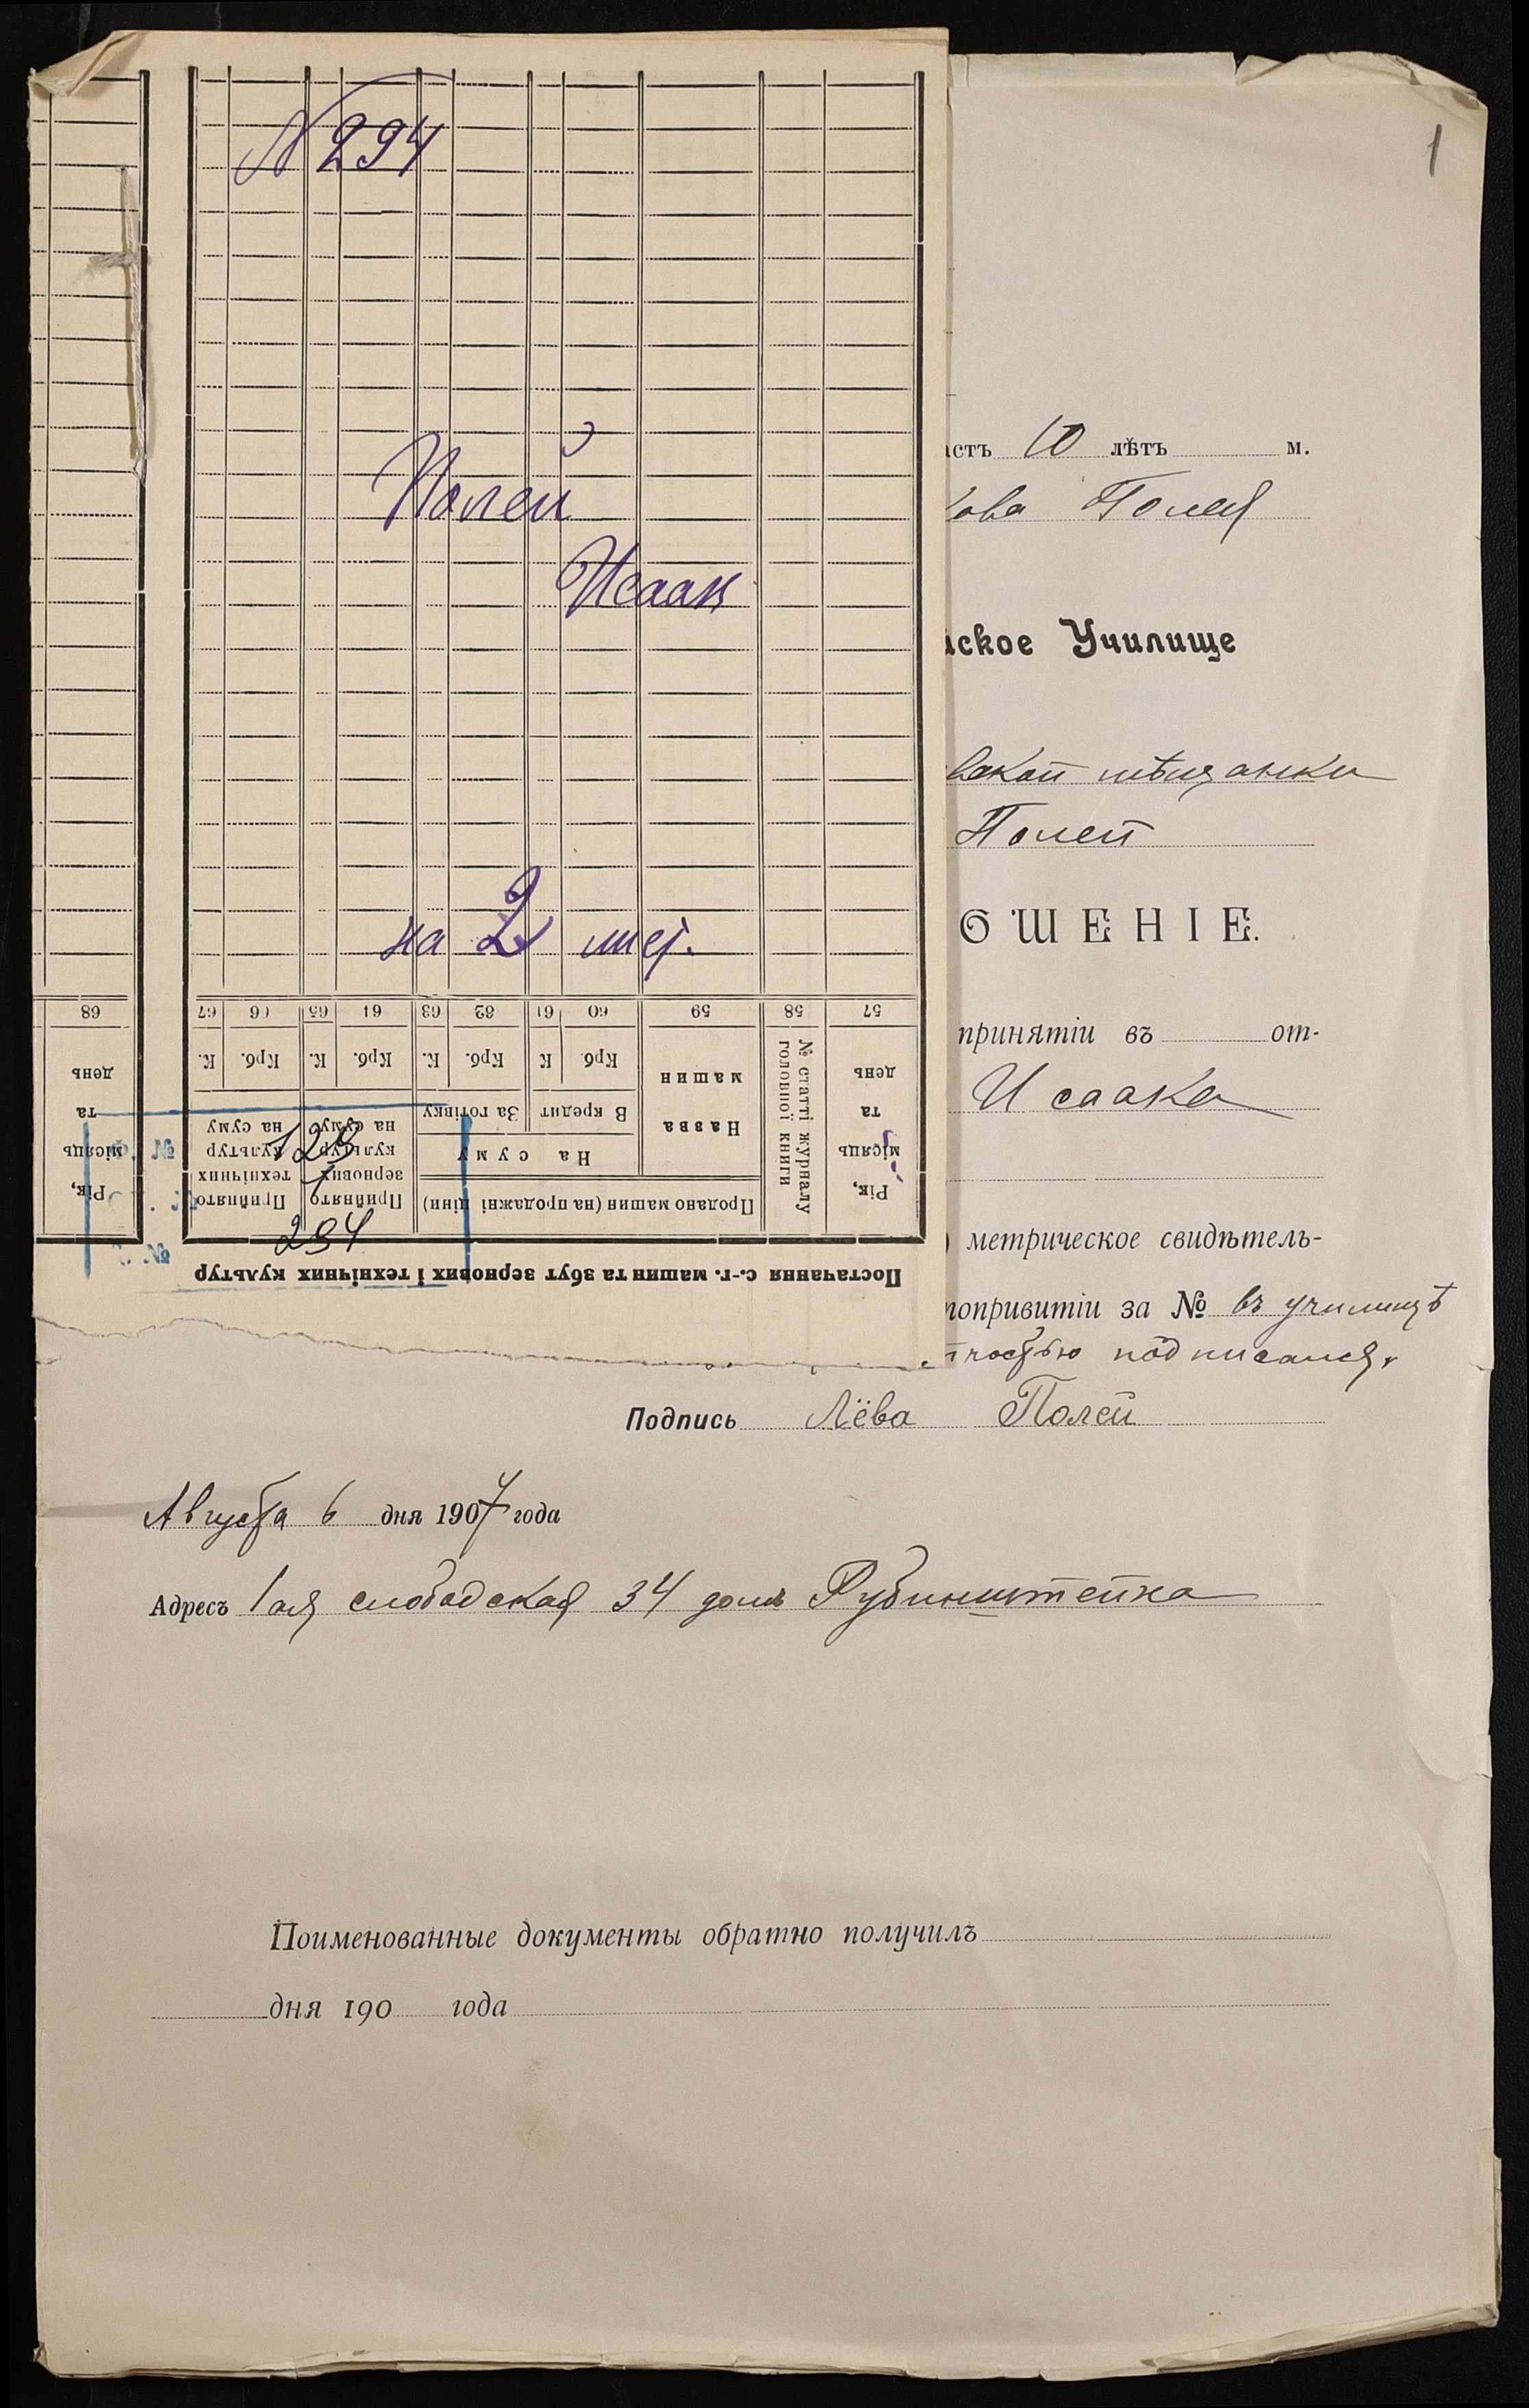 № 294
Полей
Исаак
на 2 лист.
68 67 66 65 64 63 62 61 60 59 58 57
день К. Крб. К. Крб. К. Крб. К Крб. машин № статті журналу головної книги день
та на суму на суму За готівку В кредит Назва та
місяць культур культур На суму місяць
технічних зернових
Рік, Прийнято Прийнято Продано машин (на продажні ціни) Рік,
129
294
Постачання с.-г. машин та збут зернових і технічних культур
1
астъ 10 лѣтъ м.
Полея
ское Училище
вской мѣщанки
Полей
ОШЕНІЕ.
принятіи въ от-
Исаака
метрическое свидѣтель-
попривитіи за № въ училищѣ
подписался.
Подпись Лёва Полей
Августа 6 дня 1907 года
Адресъ 1ая слободская 34 домъ Рубинштейна
Поименованные документы обратно получилъ
дня 190 года